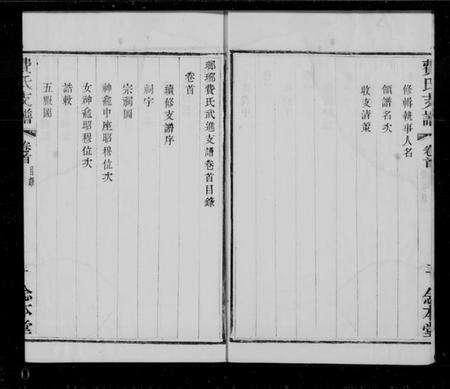 費氏支譜 卷首 念本堂
修輯執事人名
領譜名次
收支清策
瑯琊費氏武進支譜卷首目錄
卷首
續修支譜序
祠宇
宗祠圖
神龕中座昭穆位次
女神龕昭穆位次
誥敕
五服圖
費氏支譜 卷首 目錄 一 念本堂